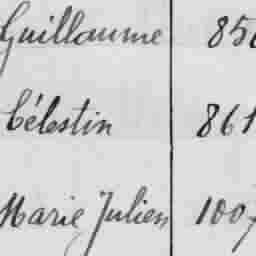 Guillaume 850
Célestin 861
Marie Julien 1007